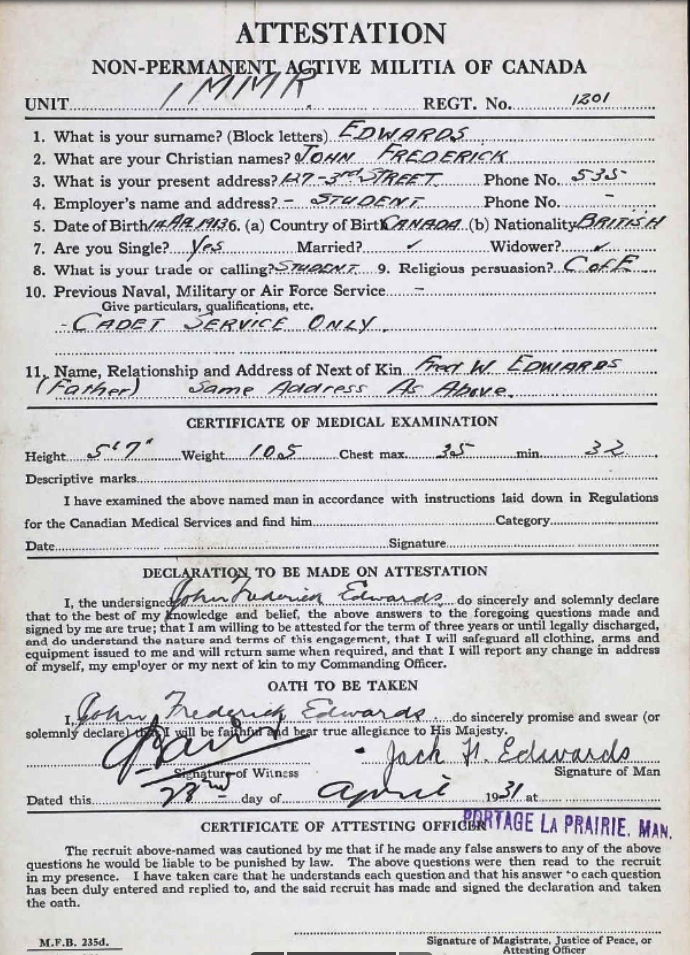 ATTESTATION
NON-PERMANENT ACTIVE MILITIA OF CANADA
UNIT 1 MMR. REGT. No. 1201
1. What is your surname? (Block letters) EDWARDS
2. What are your Christian names? JOHN FREDERICK
3. What is your present address? 127-3rd STREET Phone No. 535
4. Employer's name and address? - STUDENT Phone No. -
5. Date of Birth 14 AP. 1913 6. (a) Country of Birth CANADA (b) Nationality BRITISH
7. Are you Single? Yes Married? ✓ Widower? ✓
8. What is your trade or calling? STUDENT 9. Religious persuasion? C of E
10. Previous Naval, Military or Air Force Service -
Give particulars, qualifications, etc.
- CADET SERVICE ONLY.
11. Name, Relationship and Address of Next of Kin Fred W. EDWARDS
(Father) Same Address As Above.
CERTIFICATE OF MEDICAL EXAMINATION
Height 5'7" Weight 105 Chest max. 35 min. 32
Descriptive marks
I have examined the above named man in accordance with instructions laid down in Regulations
for the Canadian Medical Services and find him Category
Date Signature
DECLARATION TO BE MADE ON ATTESTATION
I, the undersigned, John Frederick Edwards, do sincerely and solemnly declare
that to the best of my knowledge and belief, the above answers to the foregoing questions made and
signed by me are true; that I am willing to be attested for the term of three years or until legally discharged,
and do understand the nature and terms of this engagement, that I will safeguard all clothing, arms and
equipment issued to me and will return same when required, and that I will report any change in address
of myself, my employer or my next of kin to my Commanding Officer.
OATH TO BE TAKEN
I, John Frederick Edwards, do sincerely promise and swear (or
solemnly declare) that I will be faithful and bear true allegiance to His Majesty.
Jack F. Edwards
Signature of Witness Signature of Man
Dated this 23rd day of April 1931 at
PORTAGE LA PRAIRIE, MAN.
CERTIFICATE OF ATTESTING OFFICER
The recruit above-named was cautioned by me that if he made any false answers to any of the above
questions he would be liable to be punished by law. The above questions were then read to the recruit
in my presence. I have taken care that he understands each question and that his answer to each question
has been duly entered and replied to, and the said recruit has made and signed the declaration and taken
the oath.
M.F.B. 235d.
Signature of Magistrate, Justice of Peace, or
Attesting Officer